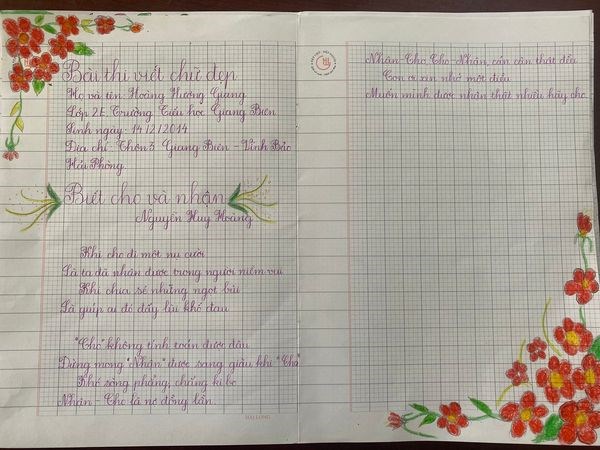 Bài thi viết chữ đẹp
Họ và tên: Hoàng Hương Giang
Lớp 2E. Trường Tiểu học Giang Biên
Sinh ngày: 14/12/2014
Địa chỉ: Thôn 3 Giang Biên - Vĩnh Bảo
Hải Phòng.
Biết cho và nhận
Nguyễn Huy Hoàng
Khi cho đi một nụ cười
Là ta đã nhận được trong người niềm vui
Khi chia sẻ những ngọt bùi
Là giúp ai đó đẩy lùi khổ đau
"Cho" không tính toán được đâu
Đừng mong "Nhận" được sang giàu khi "Cho"
Khó sòng phẳng, chẳng kì bo
Nhận - Cho là nó đồng lần.
Nhận - Cho Cho - Nhận, cán cân thật đều
Con ơi xin nhớ một điều
Muốn mình được nhận thật nhiều hãy cho
HẢI LONG